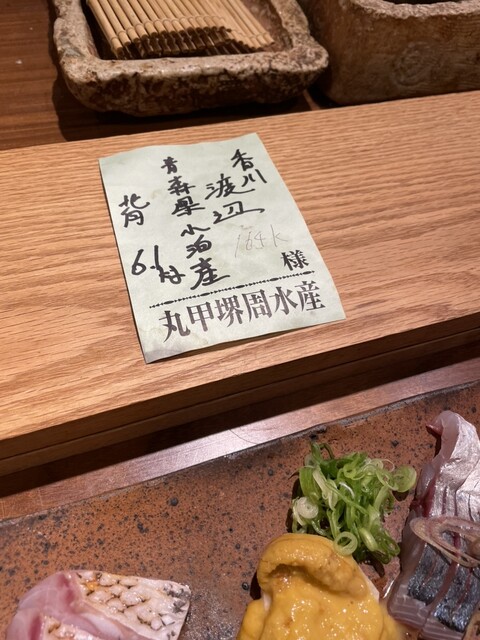 香川
渡辺
164k
様
青森県小泊産
背
6.1
丸甲堺周水産